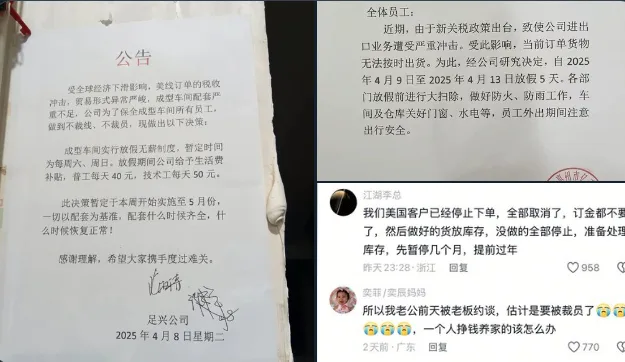 公告
受全球经济下滑影响，美线订单的税收
冲击，贸易形式异常严峻，成型车间配套严
重不足，公司为了保全成型车间所有员工，
做到不裁线、不裁员，现做出以下决策：
成型车间实行放假无薪制度，暂定时间
为每周六、周日。放假期间公司给予生活费
补贴，普工每天 40 元，技术工每天 50 元。
此决策暂定于本周开始实施至 5 月份，
一切以配套为基准。配套什么时候齐全，什
么时候恢复正常！
感谢理解，希望大家携手度过难关。
足兴公司
2025 年 4 月 8 日星期二
全体员工：
近期，由于新关税政策出台，致使公司进出
口业务遭受严重冲击。受此影响，当前订单货物
无法按时出货。为此，经公司研究决定，自 2025
年 4 月 9 日至 2025 年 4 月 13 日放假 5 天，各部
门放假前进行大扫除，做好防火、防雨工作，车
间及仓库关好门窗、水电等，员工外出期间注意
出行安全。
江湖李总
我们美国客户已经停止下单，全部取消了，订金都不要
了，然后做好的货放库存，没做的全部停止，准备处理
库存，先暂停几个月，提前过年
昨天 23:28 · 浙江 回复
958
奕菲/奕辰妈妈
所以我老公前天被老板约谈，估计是要被裁员了😭😭
😭😭😭，一个人挣钱养家的该怎么办
2天前 · 广东 回复
770